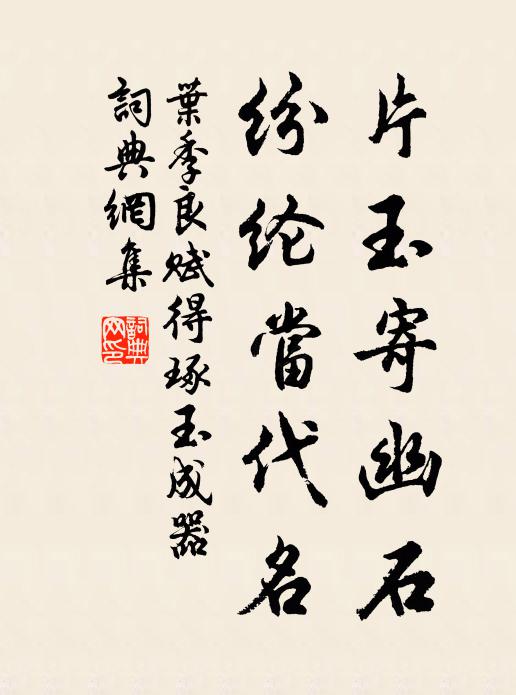 片玉寄幽石
纷纶當代名
葉季良赋得琢玉成器
詞典網集
詞典網印